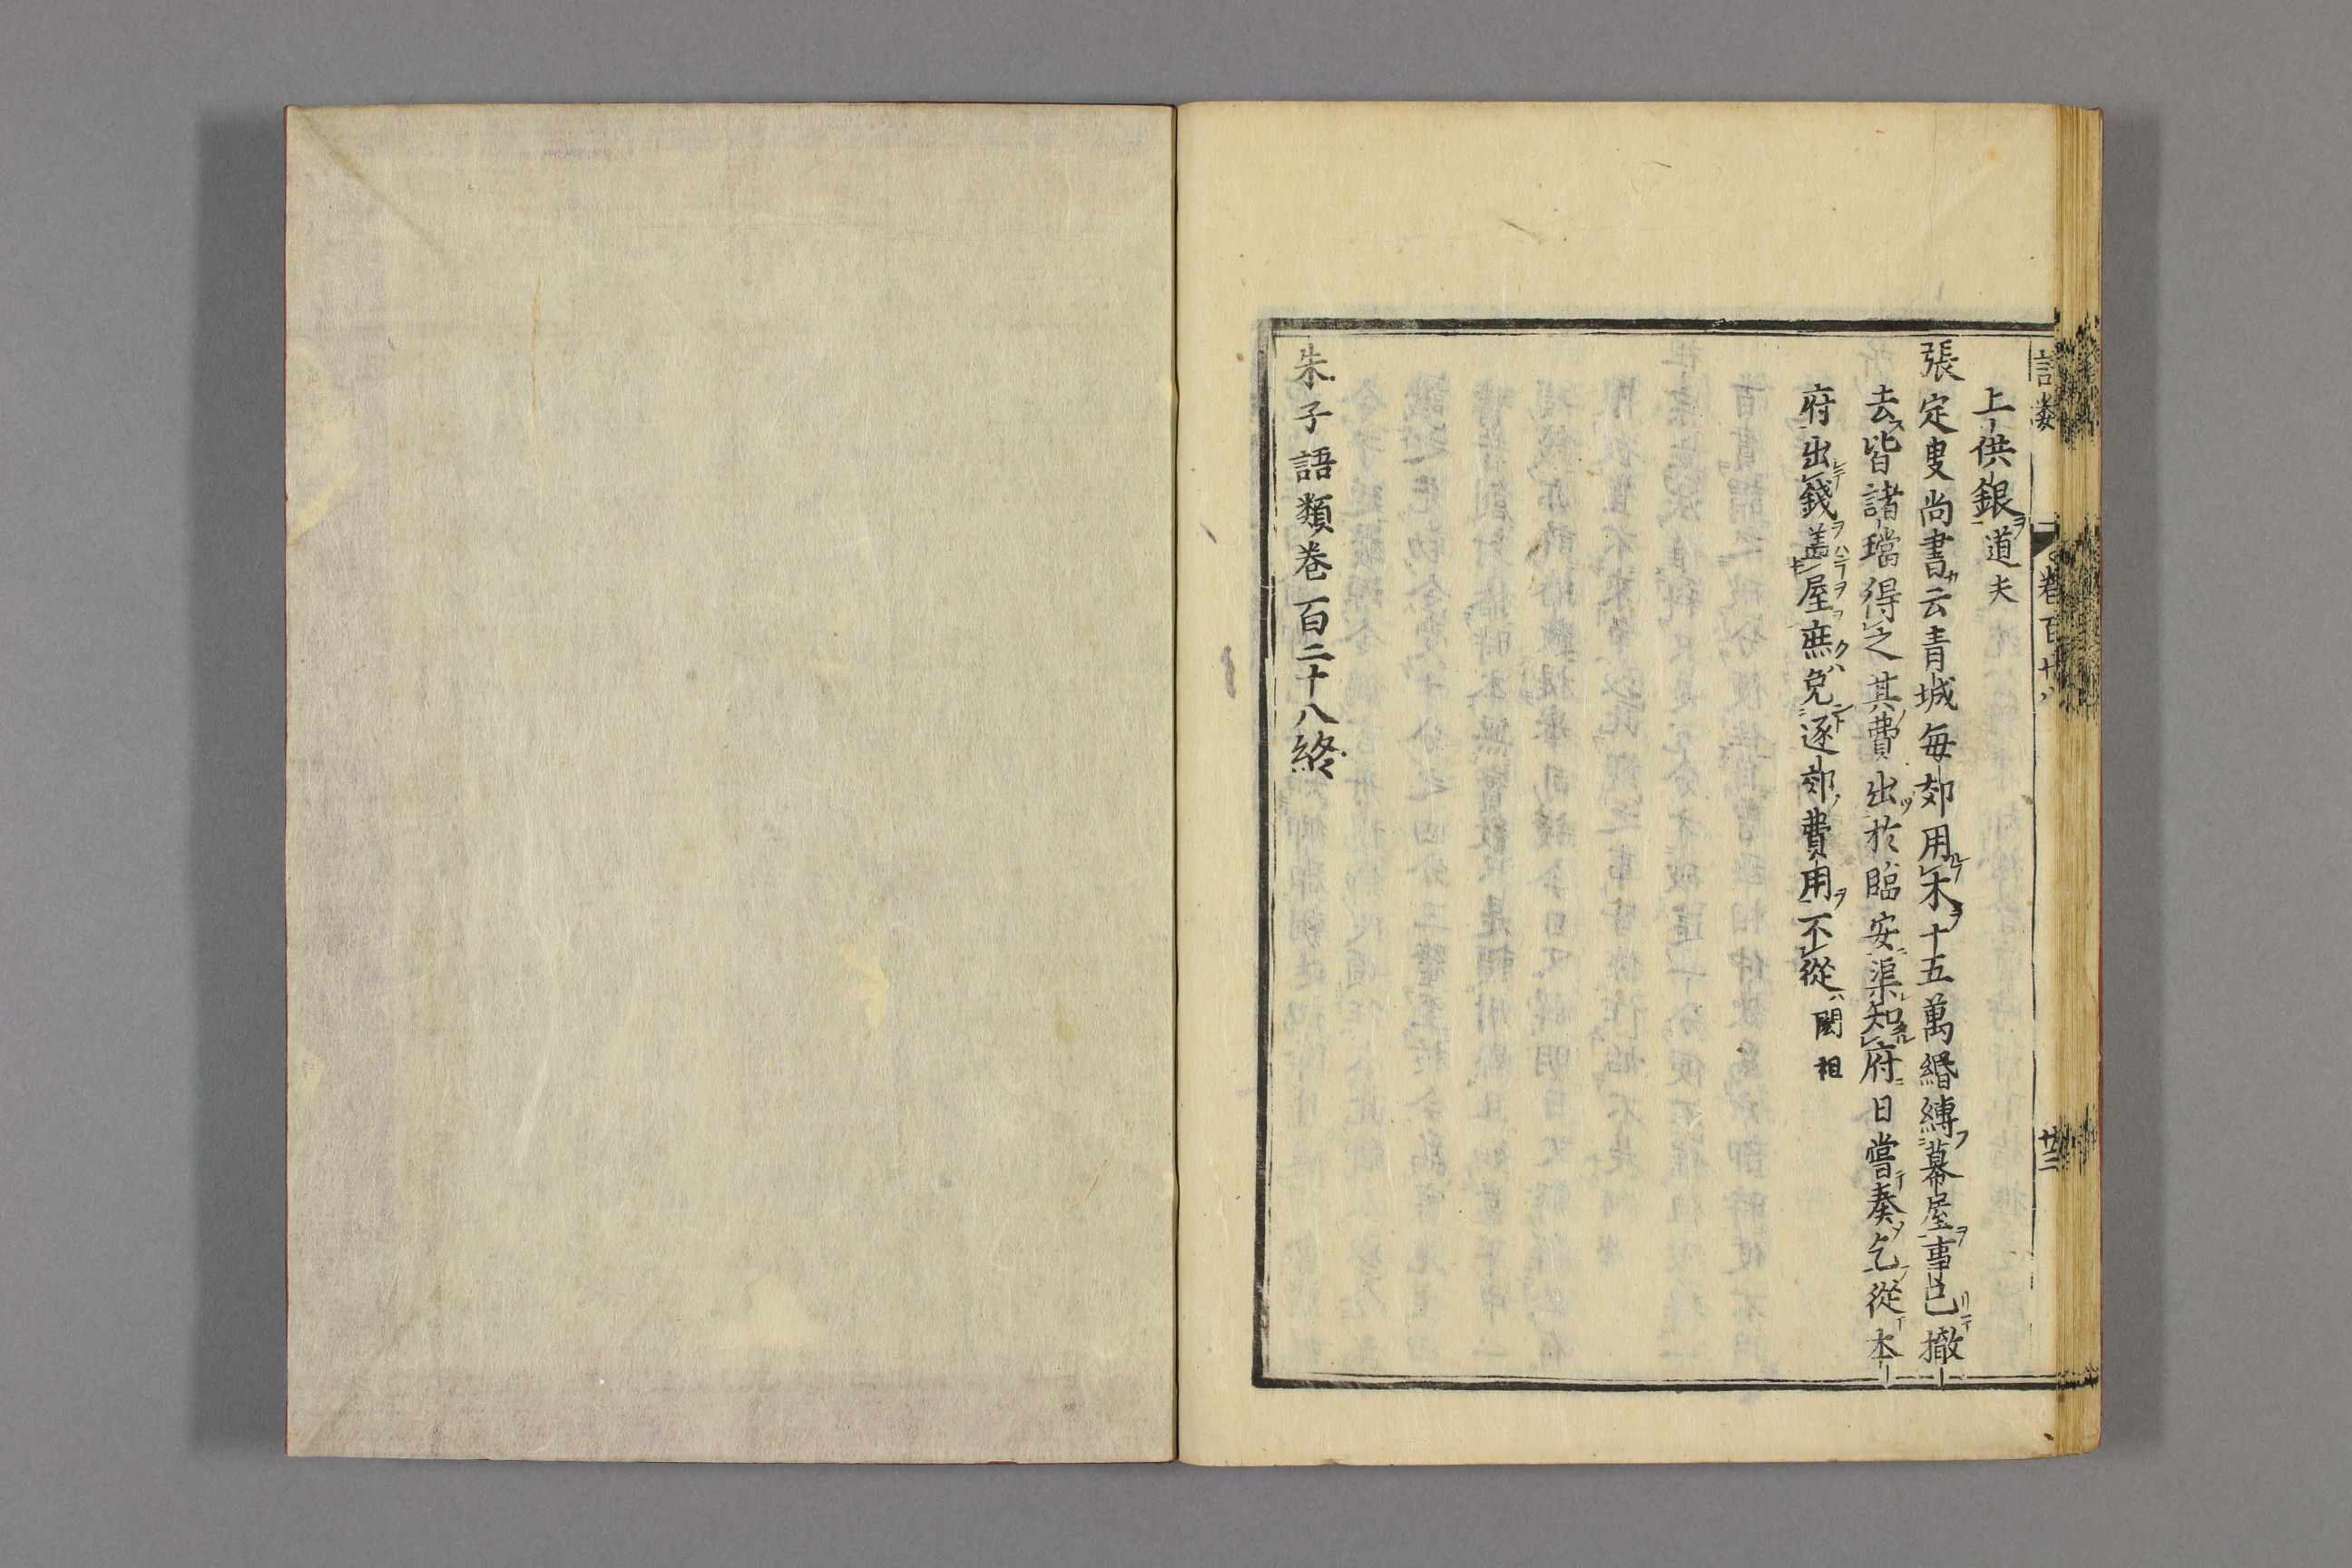 上供銀道夫
張定叟尚書云青城每郊用木十五萬緡縛幕屋事已撤
去皆諸璫得之其費出於臨安渠知府日嘗奏乞從本
府出錢盖屋庶免逐郊費用不從閎祖
朱子語類巻百二十八終